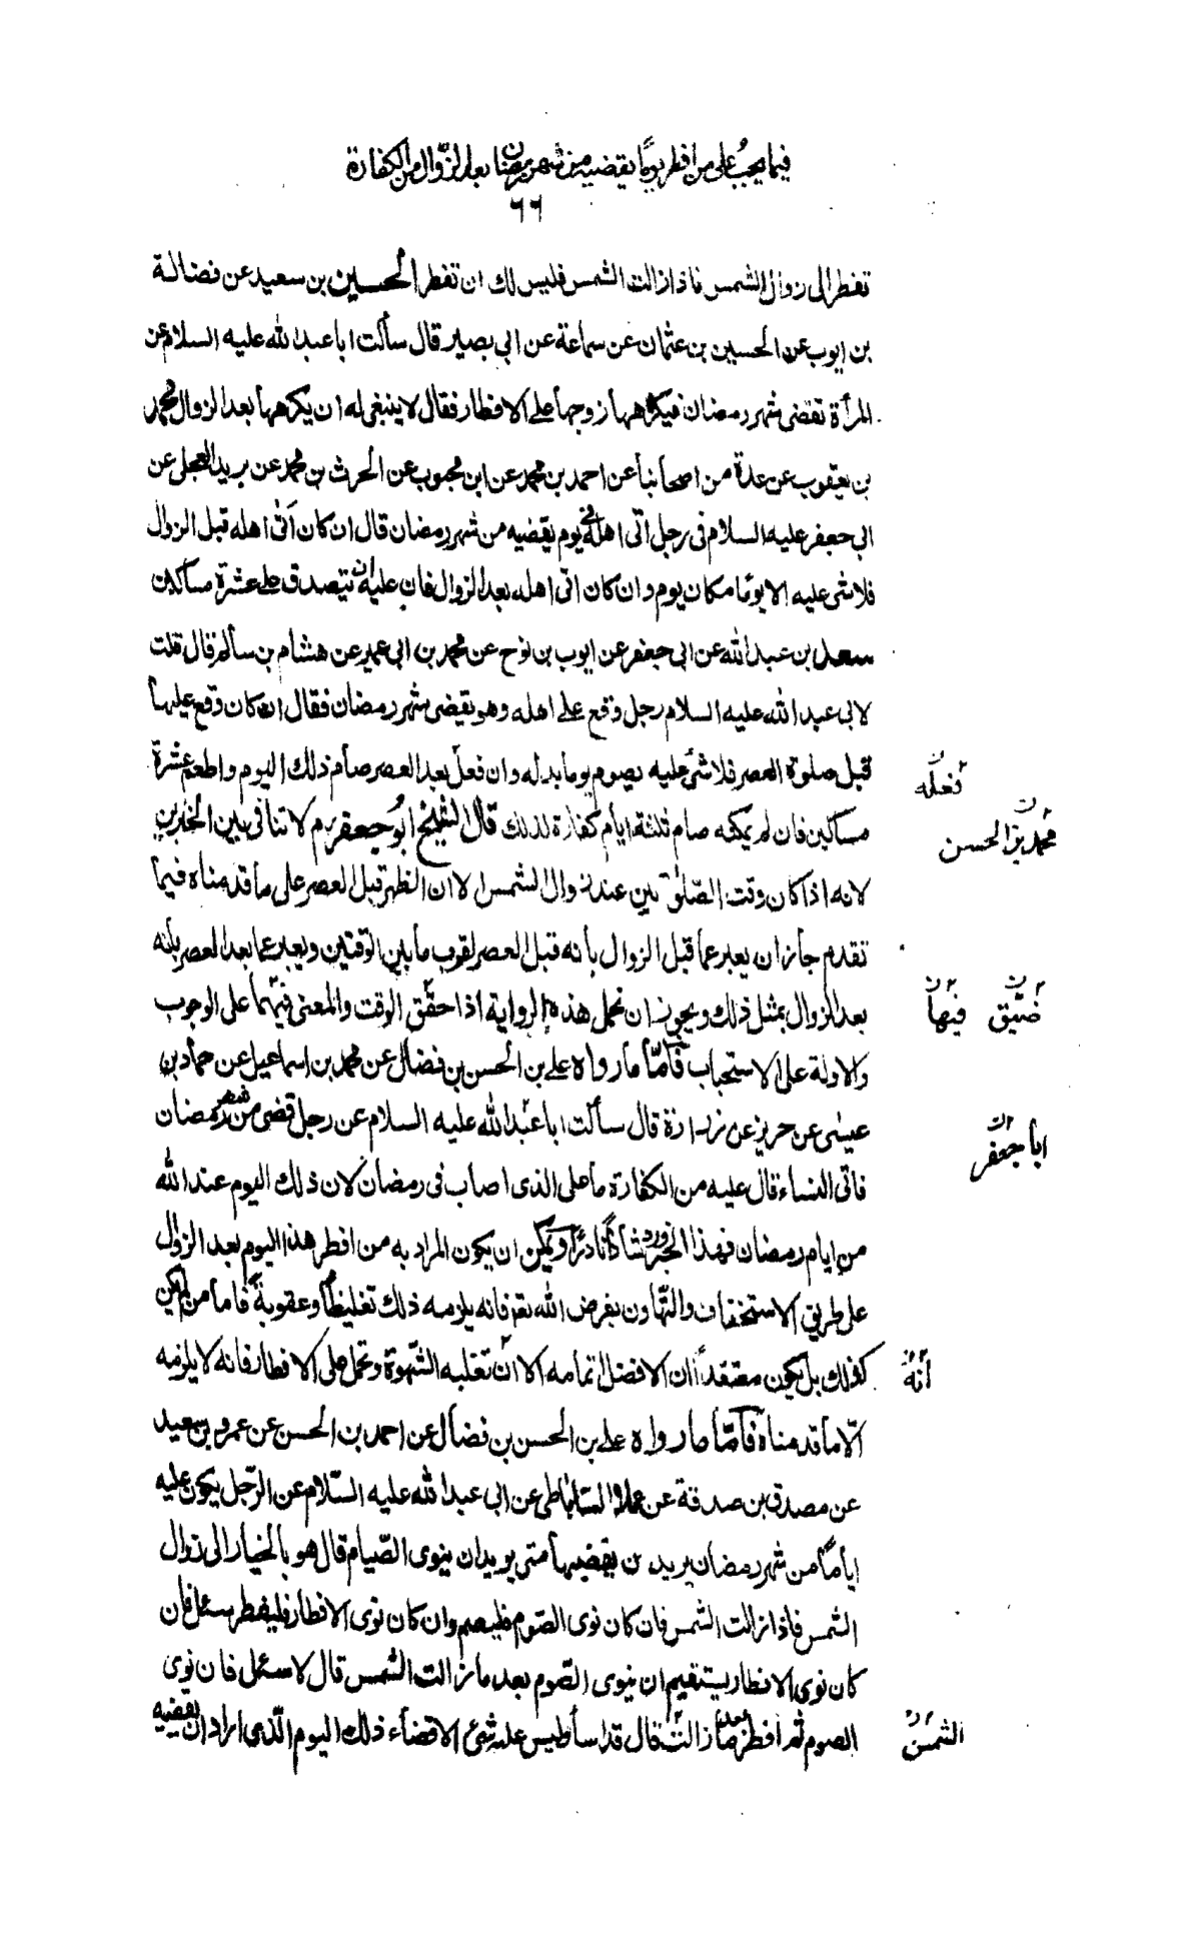 فيما يجب على من افطر يوما يقضيه من شهر رمضان بعد الزوال من الكفارة
٦٦
تفطر الى زوال الشمس فاذا زالت الشمس فليس لك ان تفطر الحسين بن سعيد عن فضالة
بن ايوب عن الحسين بن عثمان عن سماعة عن ابي بصير قال سألت ابا عبد الله عليه السلام عن
المرأة تقضى شهر رمضان فيكرهها زوجها على الافطار فقال لا ينبغى له ان يكرهها بعد الزوال محمد
بن يعقوب عن عدة من اصحابنا عن احمد بن محمد عن ابن محبوب عن الحرث بن محمد عن بريد العجلى عن
ابي جعفر عليه السلام فى رجل اتى اهله في يوم يقضيه من شهر رمضان قال ان كان اتى اهله قبل الزوال
فلا شى عليه الا يوما مكان يوم وان كان اتى اهله بعد الزوال فان عليه ان يتصدق على عشرة مساكين
سعد بن عبد الله عن ابى جعفر عن ايوب بن نوح عن محمد بن ابى عمير عن هشام بن سالم قال قلت
لابى عبد الله عليه السلام رجل وقع على اهله وهو يقضى شهر رمضان فقال ان كان وقع عليها
قبل صلوة العصر فلا شئ عليه يصوم يوما بدله وان فعل بعد العصر صام ذلك اليوم واطعم عشرة
فعله
مساكين فان لم يمكنه صام ثلثة ايام كفارة لذلك قال الشيخ ابو جعفر لا تنافى بين الخبرين
محمد بن الحسن
لانه اذا كان وقت الصلوتين عند زوال الشمس الا ان الظهر قبل العصر على ما قدمناه فيما
تقدم جاز ان يعبر عما قبل الزوال بانه قبل العصر لقرب ما بين الوقتين ويعبر عما بعد العصر بانه
بعد الزوال بمثل ذلك ويجوز ان نحمل هذه الرواية اذا حقق الوقت والمعنى فيهما على الوجوب
ضيق فيها
والاولة على الاستحباب فأما ما رواه على بن الحسن بن فضال عن محمد بن اسماعيل عن حماد بن
عيسى عن حريز عن زرارة قال سألت ابا عبد الله عليه السلام عن رجل قضى من شهر رمضان
ابا جعفر
فاتى النساء قال عليه من الكفارة ما على الذى اصاب فى رمضان لان ذلك اليوم عند الله
من ايام رمضان فهذا الخبر ورد شاذا نادرا ويمكن ان يكون المراد به من افطر هذا اليوم بعد الزوال
على طريق الاستخفاف والتهاون بفرض الله تع فانه يلزمه ذلك تغليظا وعقوبة فاما من لم يكن
كذلك بل يكون معتقدا ان الافضل اتمامه الا ان تغلبه الشهوة وتحمل على الافطار فانه لا يلزمه
أنه
الا ما قدمناه فأما ما رواه على بن الحسن بن فضال عن احمد بن الحسن عن عمرو بن سعيد
عن مصدق بن صدقة عن عمار الساباطى عن ابى عبد الله عليه السلام عن الرجل يكون عليه
اياما من شهر رمضان يريد ن يقضيها متى يريد ان ينوى الصيام قال هو بالخيار الى زوال
الشمس فاذا زالت الشمس فان كان نوى الصوم فليصم وان كان نوى الافطار فليفطر سئل فان
كان نوى الافطار يستقيم ان ينوى الصوم بعد ما زالت الشمس قال لا سئل فان نوى
الصوم ثم افطر بعد ما زالت قال قد اساء وليس عليه شئ الا قضاء ذلك اليوم الذى اراد ان يقضيه
الشمس